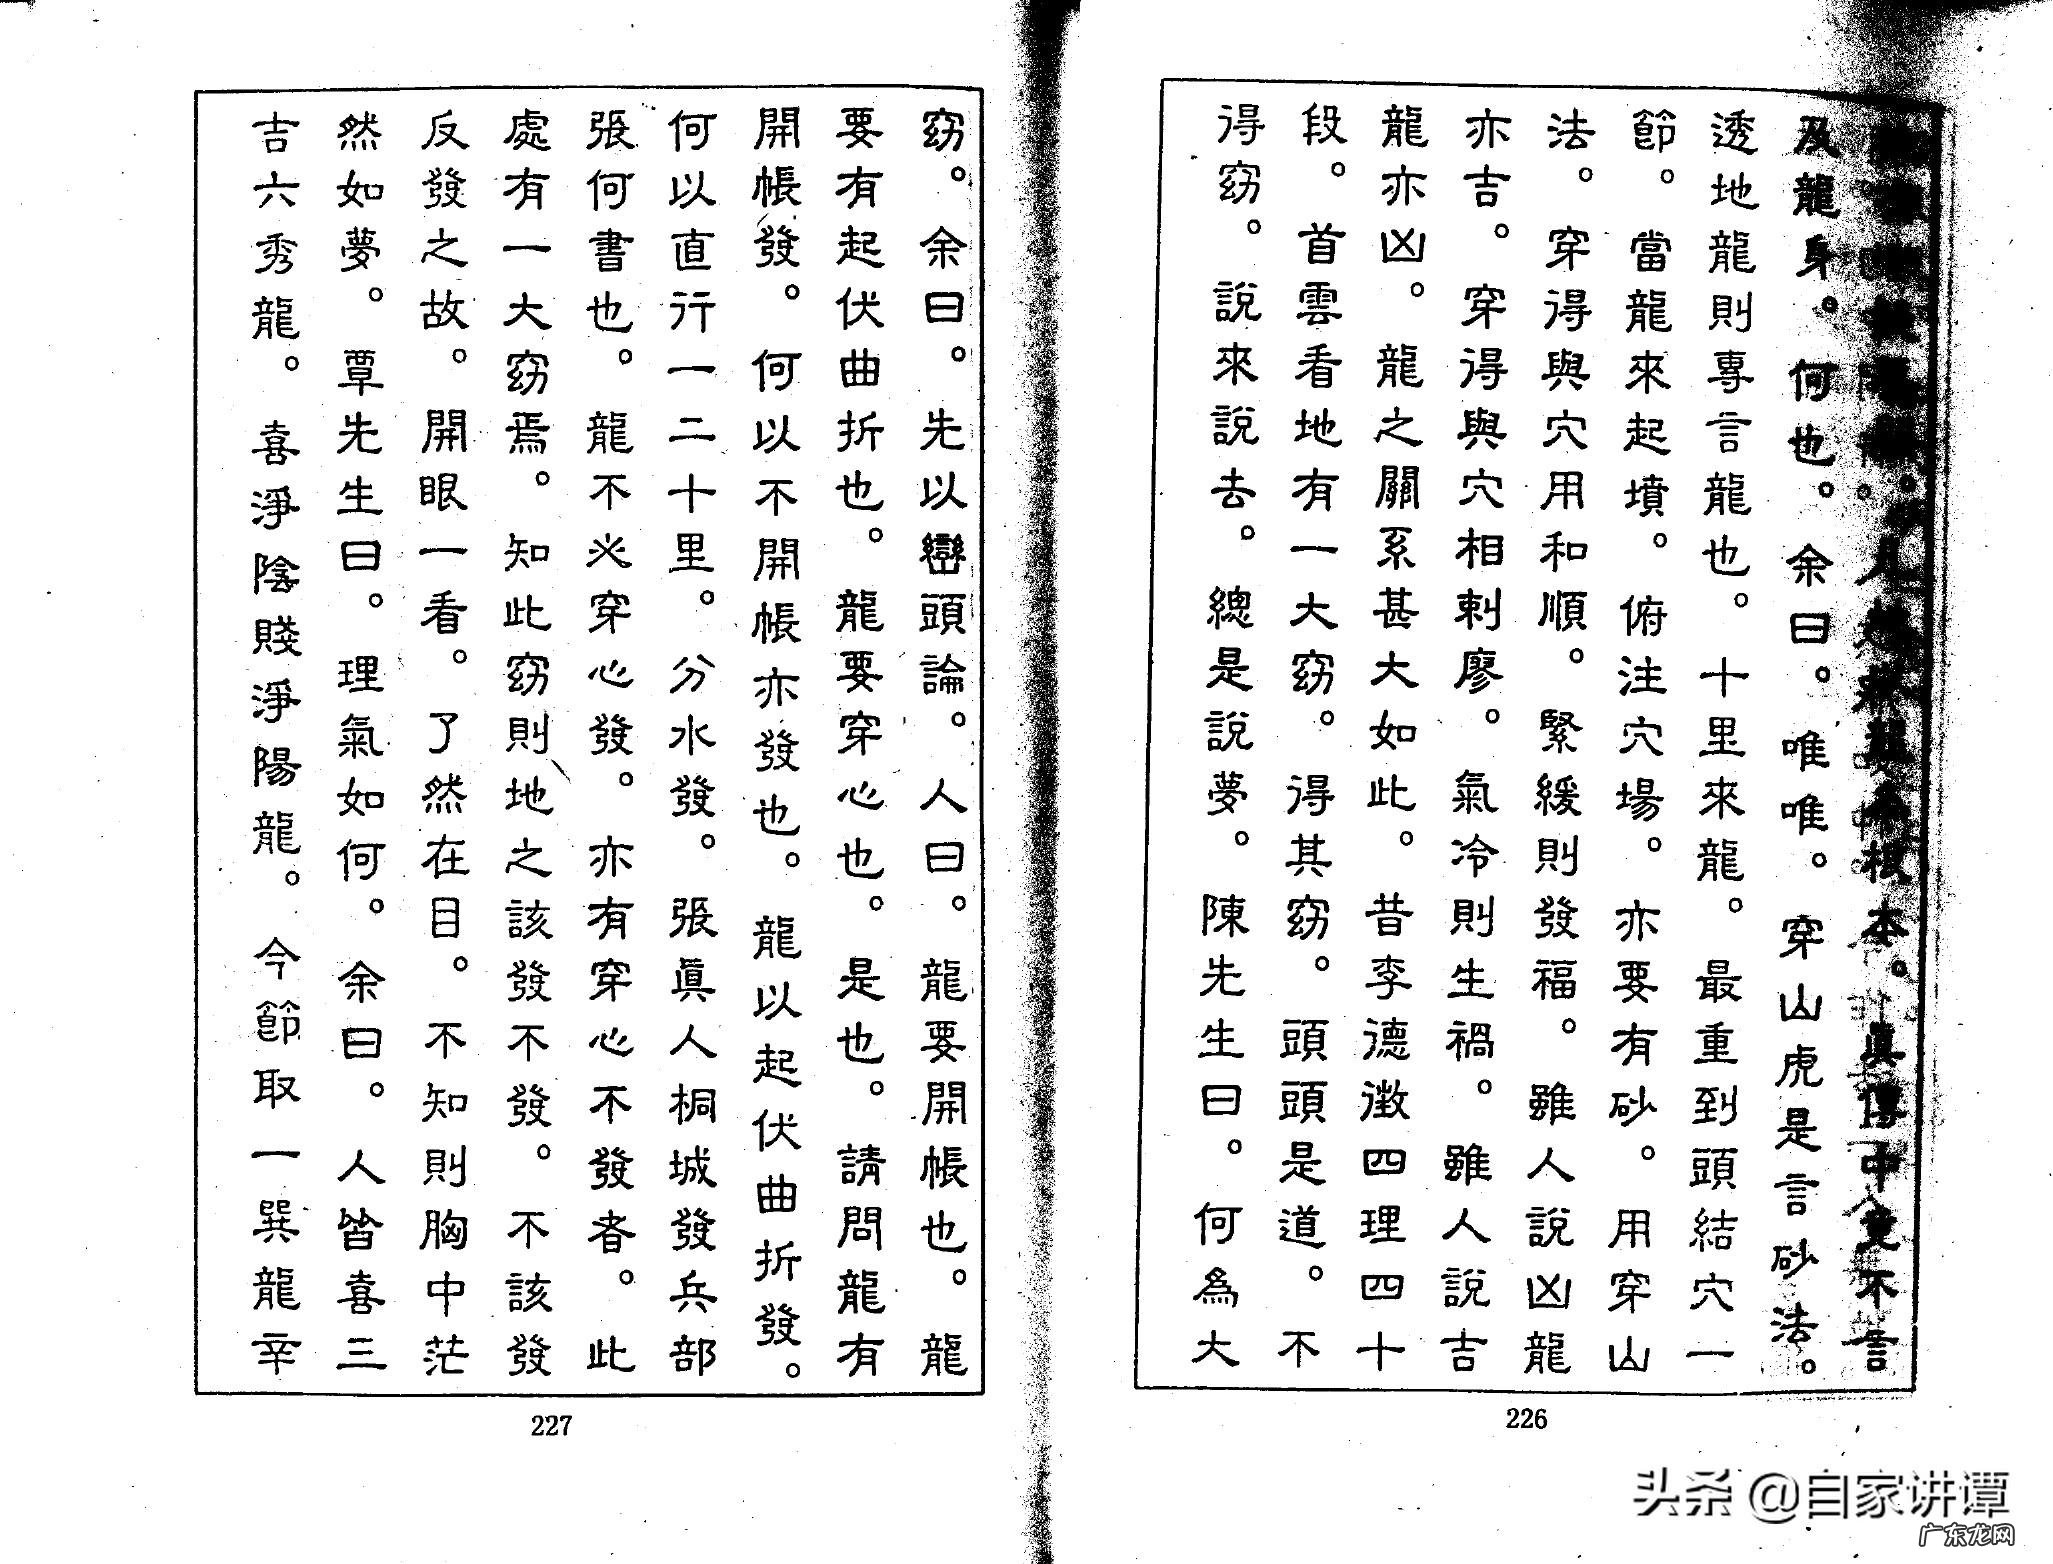 根本。真傳中竟不言
及龍身。何也。余曰。唯唯。穿山虎是言砂法。
透地龍則專言龍也。十里來龍。最重到頭結穴一
節。當龍來起墳。俯注穴場。亦要有砂。用穿山
法。穿得與穴用和順。緊緩則發福。雖人說凶龍
亦吉。穿得與穴相剌廖。氣冷則生禍。雖人說吉
龍亦凶。龍之關系甚大如此。昔李德徵四理四十
段。首雲看地有一大竊。得其竊。頭頭是道。不
得竊。說來說去。總是說夢。陳先生曰。何為大
竊。余曰。先以巒頭論。人曰。龍要開帳也。龍
要有起伏曲折也。龍要穿心也。是也。請問龍有
開帳發。何以不開帳亦發也。龍以起伏曲折發。
何以直行一二十里。分水發。張眞人桐城發兵部
張何書也。龍不必穿心發。亦有穿心不發者。此
處有一大竊焉。知此竊則地之該發不發。不該發
反發之故。開眼一看。了然在目。不知則胸中茫
然如夢。覃先生曰。理氣如何。余曰。人皆喜三
吉六秀龍。喜淨陰賤淨陽龍。今節取一巽龍辛
227
226
头条 @自家讲谭
广东龙网